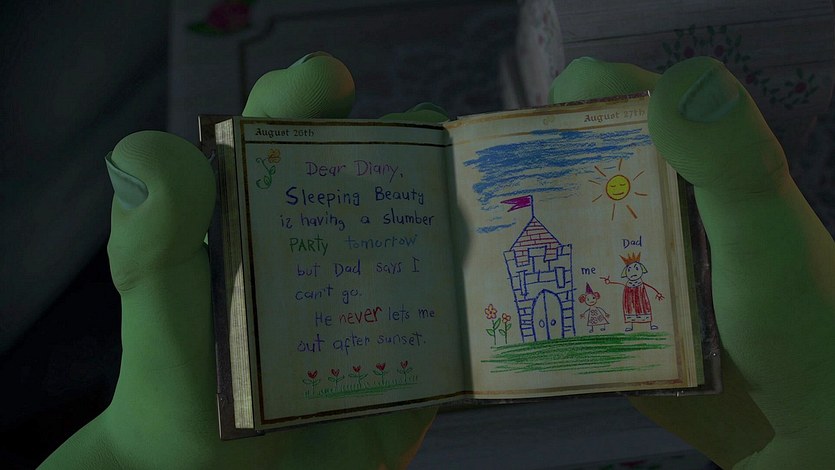 August 20th
Dear Diary,
Sleeping Beauty
is having a slumber
PARTY tomorrow
but Dad says I
can't go.
He never lets me
out after sunset.
August 27th
me
Dad